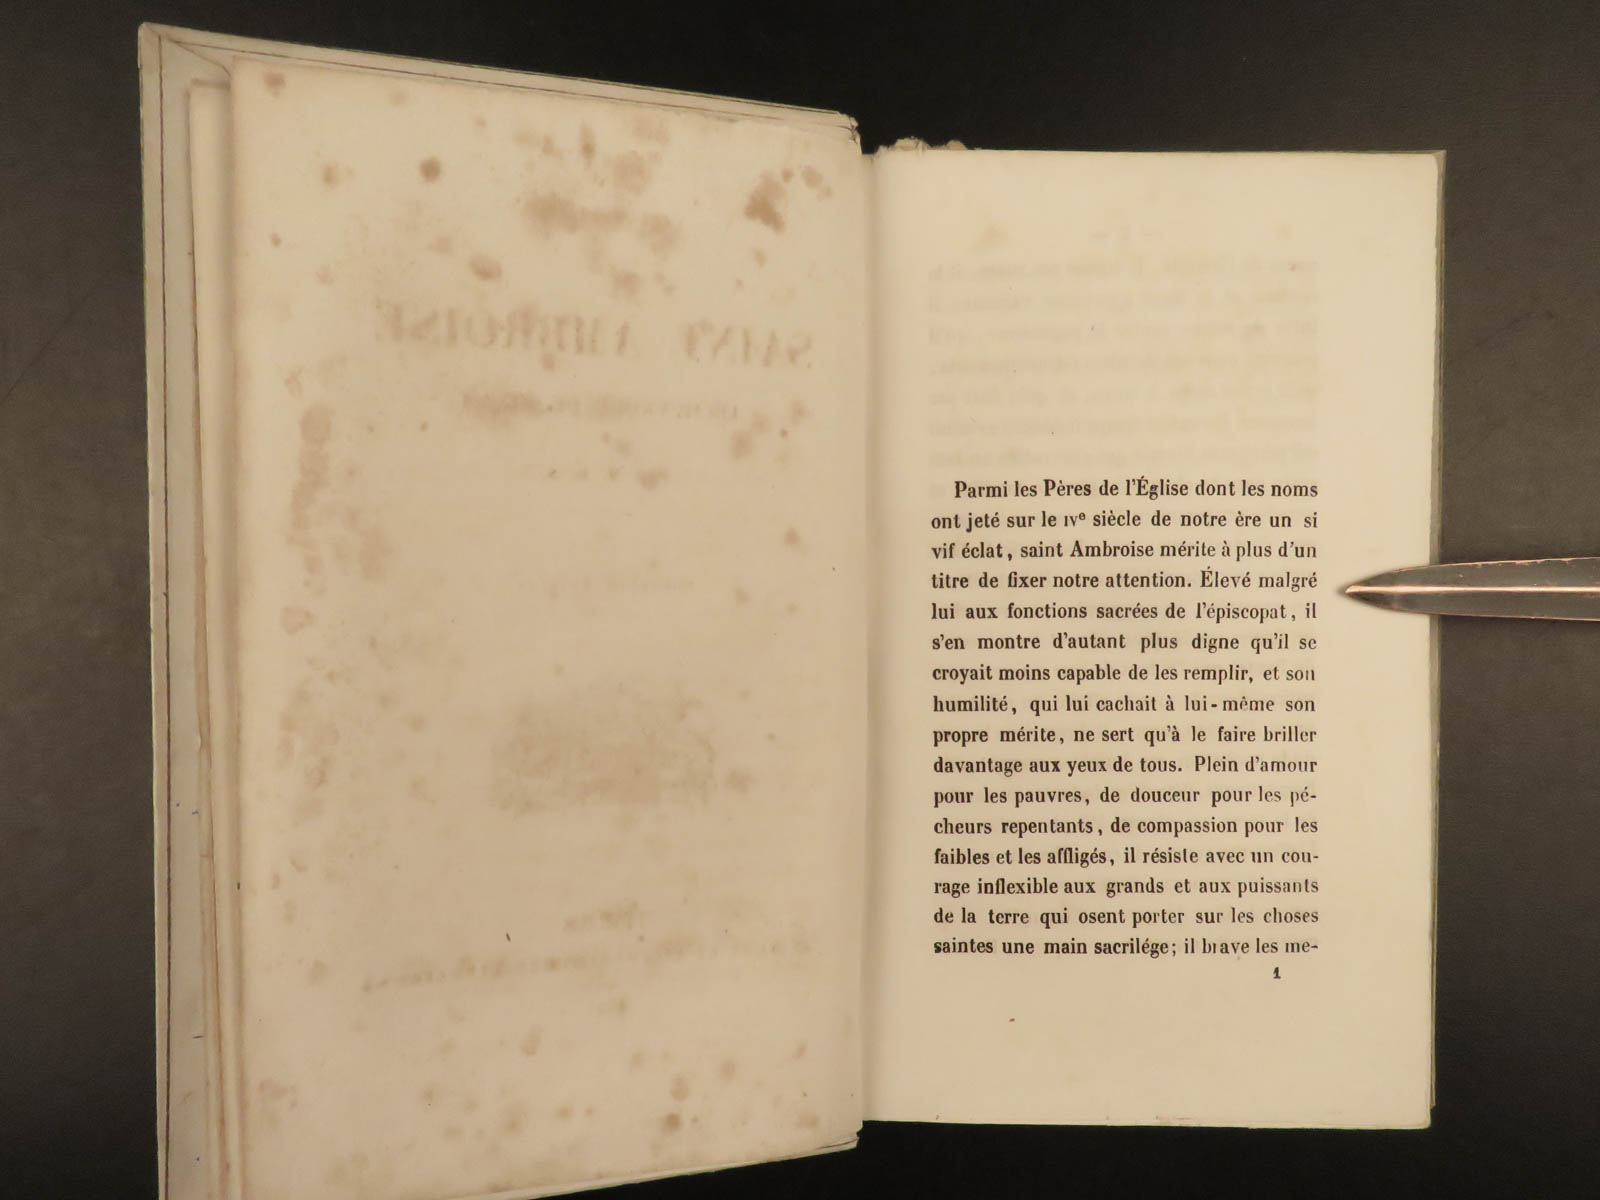 SAINT AMBROISE
Parmi les Pères de l'Église dont les noms
ont jeté sur le IVe siècle de notre ère un si
vif éclat, saint Ambroise mérite à plus d'un
titre de fixer notre attention. Élevé malgré
lui aux fonctions sacrées de l'épiscopat, il
s'en montre d'autant plus digne qu'il se
croyait moins capable de les remplir, et son
humilité, qui lui cachait à lui-même son
propre mérite, ne sert qu'à le faire briller
davantage aux yeux de tous. Plein d'amour
pour les pauvres, de douceur pour les pé-
cheurs repentants, de compassion pour les
faibles et les affligés, il résiste avec un cou-
rage inflexible aux grands et aux puissants
de la terre qui osent porter sur les choses
saintes une main sacrilége; il brave les me-
1